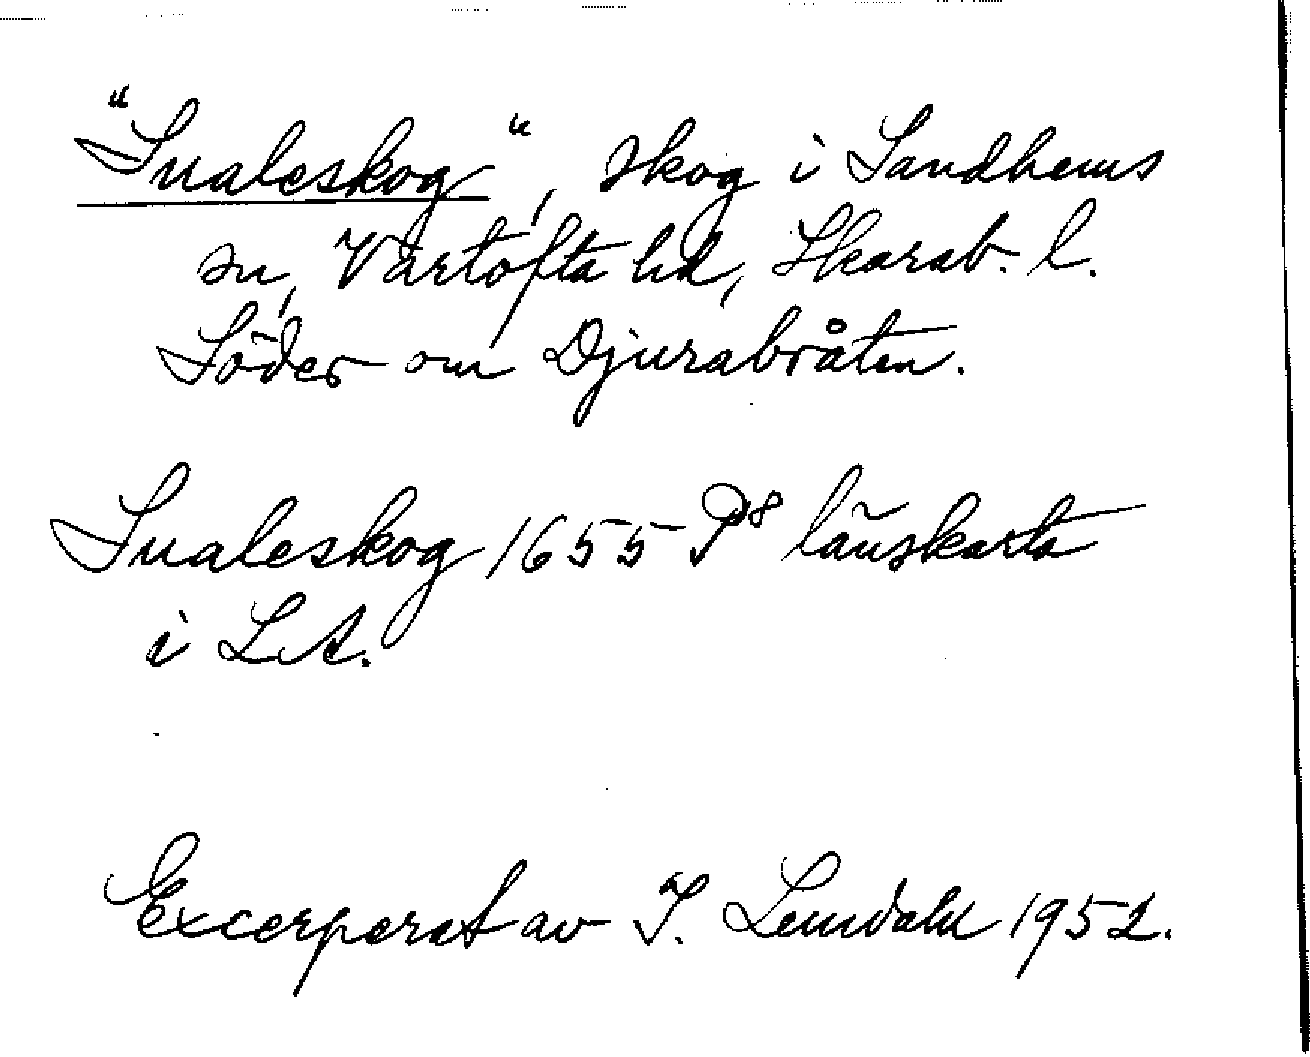 "Sualeskog", skog i Sandhems
sn, Vartofta hd, Skarab. l.
Söder om Djurabråten.
Sualeskog 1655 P⁸ länskarta
i LA.
Excerperat av I. Lundahl 1952.